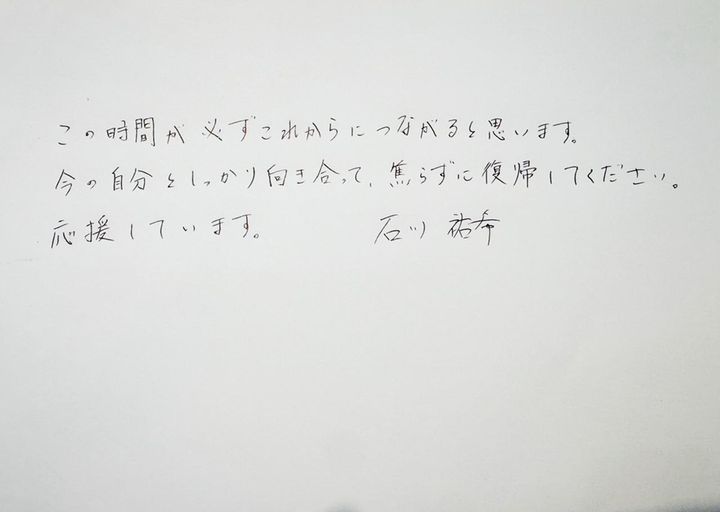 この時間が必ずこれからにつながると思います。
今の自分としっかり向き合って、焦らずに復帰してください。
応援しています。 石川 祐希